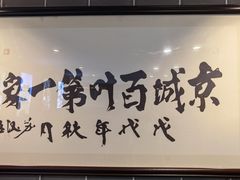 京城百叶第一家
戊戌年秋月